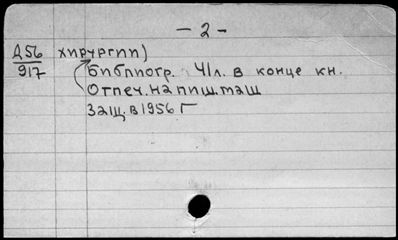 - 2 -
Д56 хирургии)
917 Библиогр. 41л. в конце кн.
Отпеч. на пиш. маш
Защ. в 1956 г